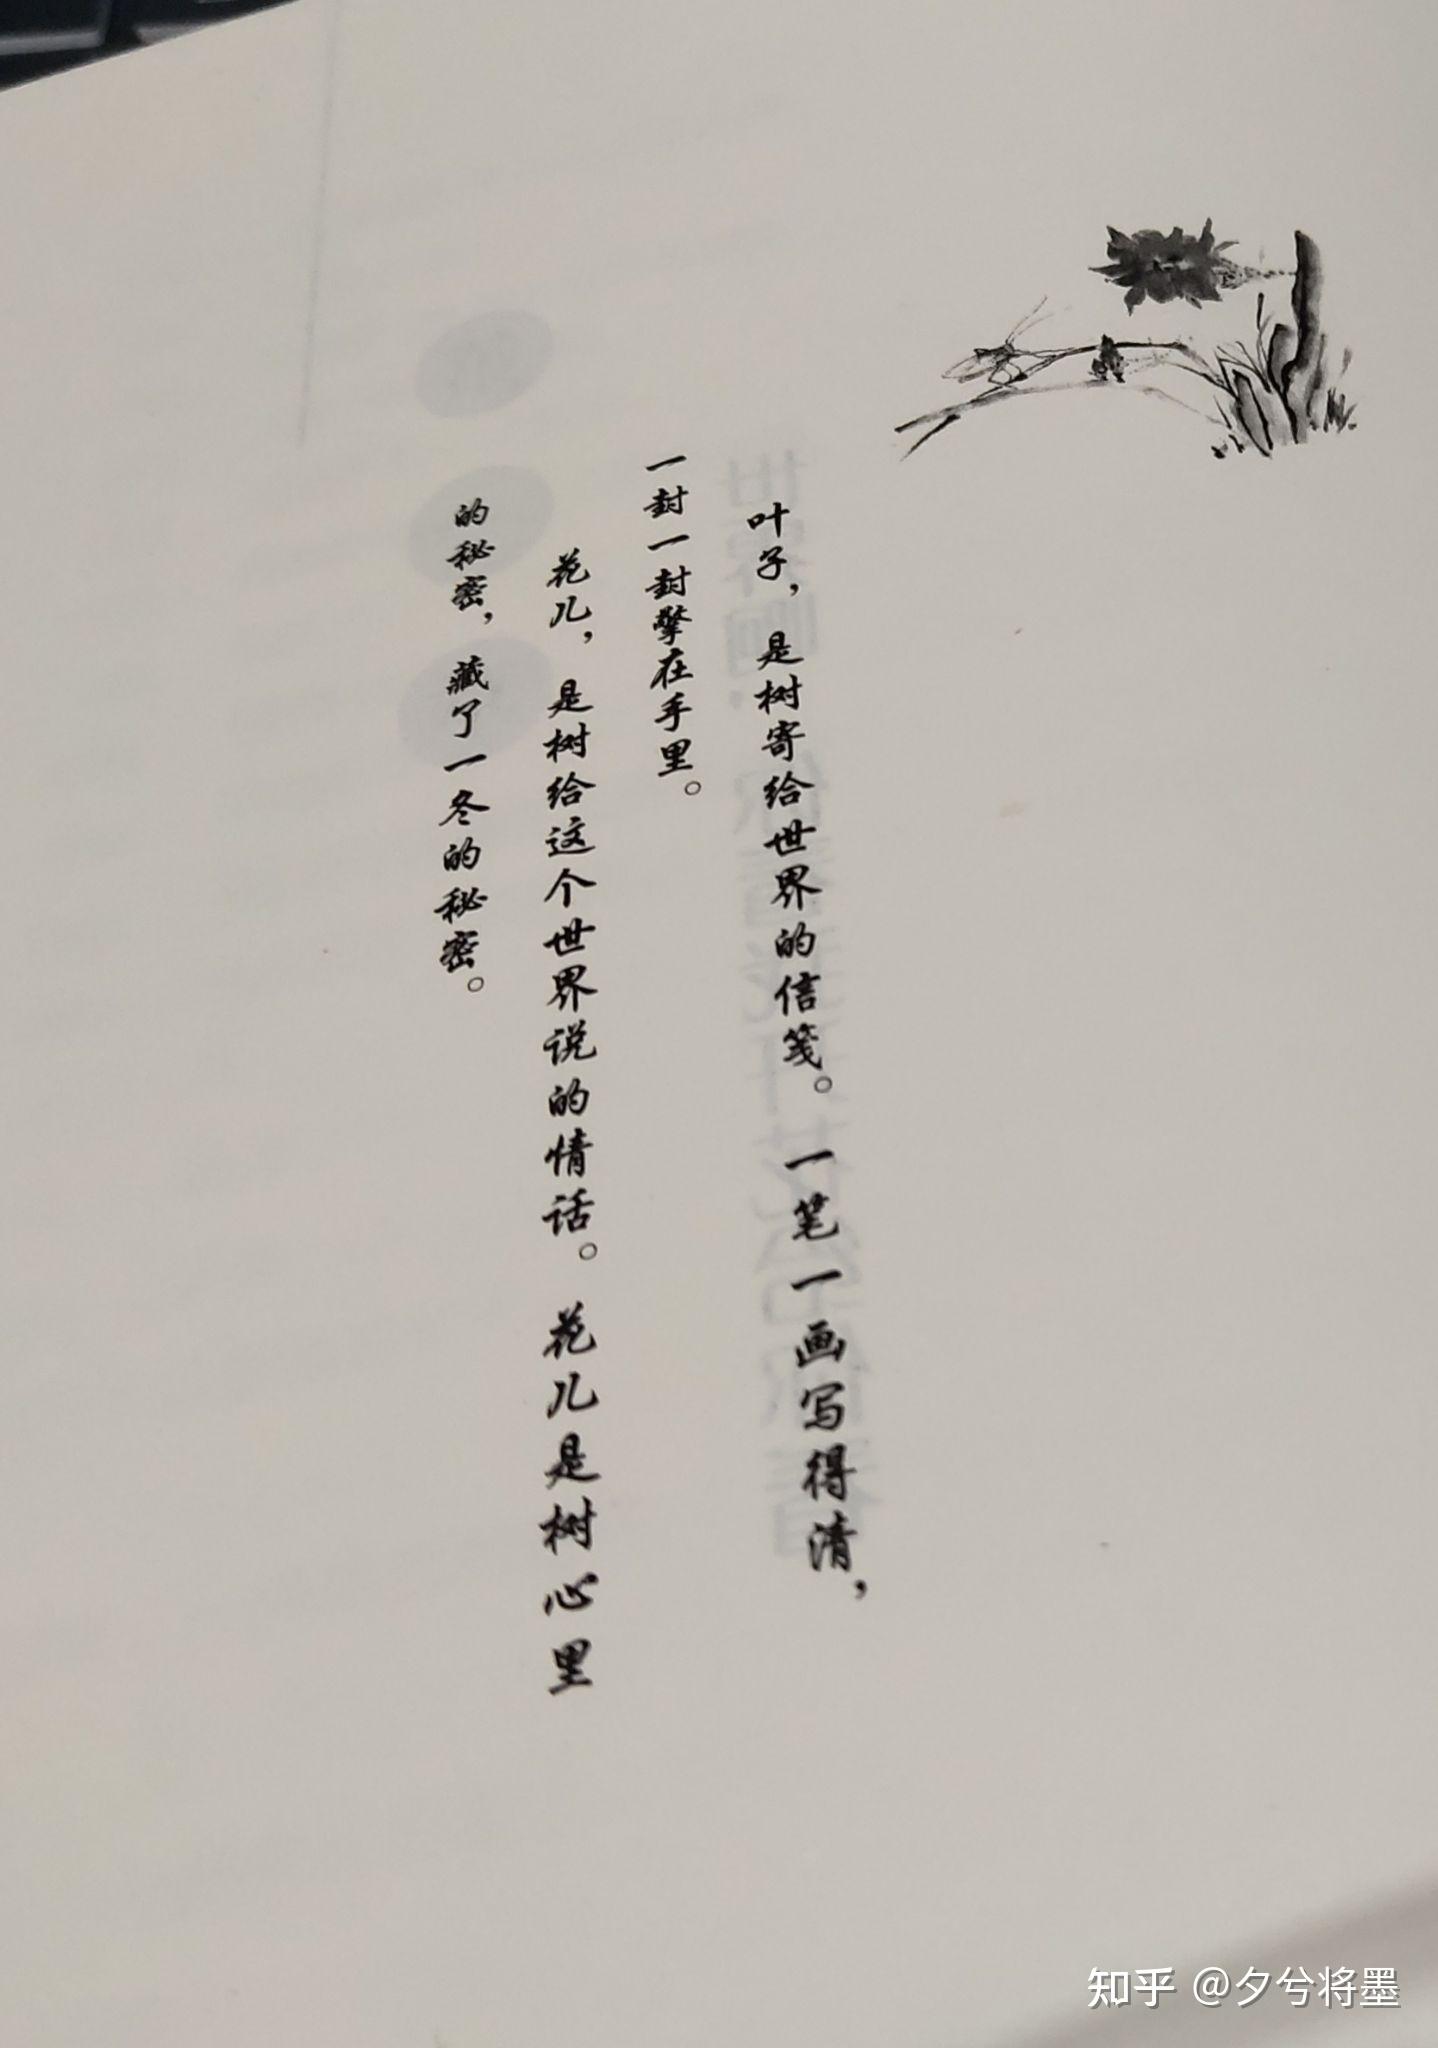 叶子，是树寄给世界的信笺。一笔一画写得清，
一封一封擎在手里。
花儿，是树给这个世界说的情话。花儿是树心里
的秘密，藏了一冬的秘密。
知乎 @夕兮将墨